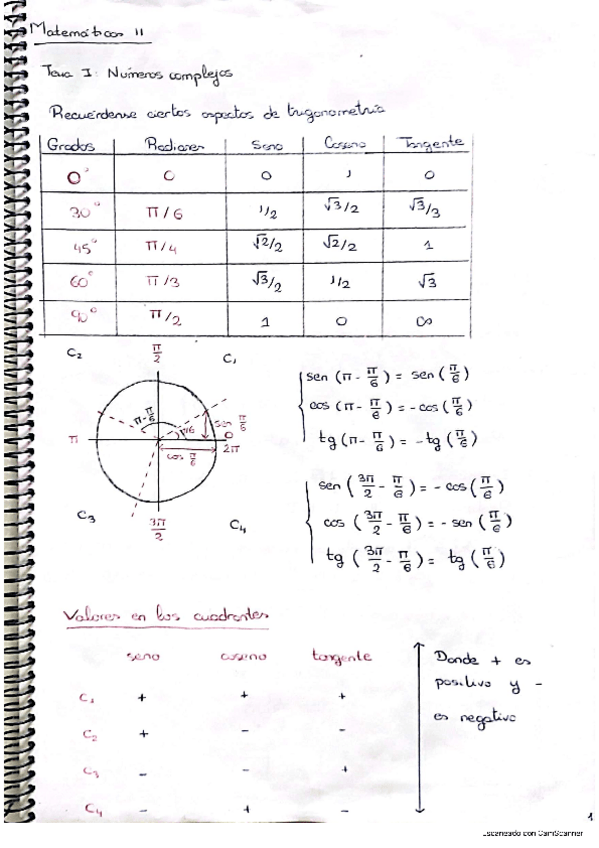 Matemáticas II
Tema I: Números complejos
Recuérdense ciertos aspectos de trigonometría
Grados Radianes Seno Coseno Tangente
0° 0 0 1 0
30° π/6 1/2 √3/2 √3/3
45° π/4 √2/2 √2/2 1
60° π/3 √3/2 1/2 √3
90° π/2 1 0 ∞
C₂ π/2 C₁
sen (π - π/6) = sen (π/6)
cos (π - π/6) = -cos (π/6)
tg (π - π/6) = -tg (π/6)
π - π/6 π/6 sen π/6
π cos π/6 0 2π
C₃ 3π/2 C₄
sen (3π/2 - π/6) = -cos (π/6)
cos (3π/2 - π/6) = -sen (π/6)
tg (3π/2 - π/6) = tg (π/6)
Valores en los cuadrantes
seno coseno tangente
C₁ + + +
C₂ + - -
C₃ - - +
C₄ - + -
Donde + es
positivo y -
es negativo
1
Escaneado con CamScanner